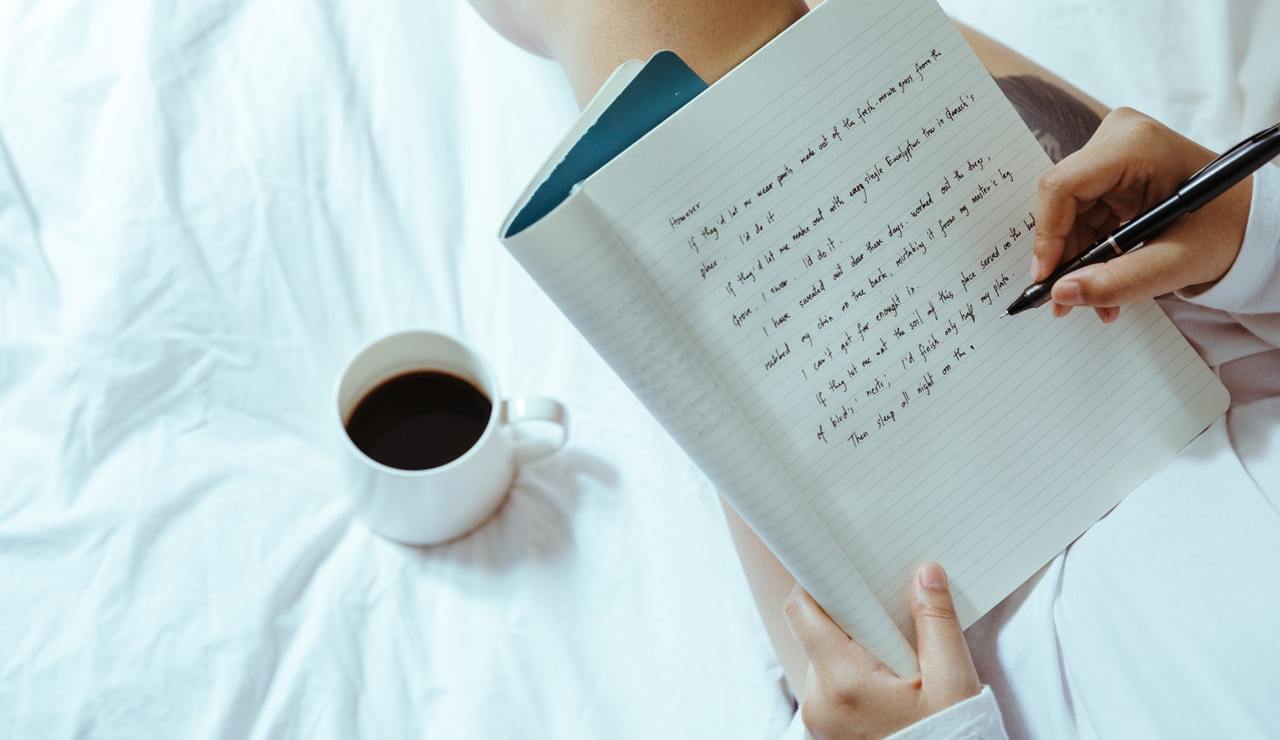 However
If they'd let me wear pants made out of the fresh-mown grass from the
place. I'd do it.
If they'd let me make out with every single Eucalyptus tree in Ganesh's
Grove I swear. I'd do it.
I have sweated out dear these days. worked out the dregs,
rubbed my chin on tree bark, mistaking it from my master's leg
I can't get far enough in.
If they let me eat the soil of this place served on the bed
of birds' nests, I'd finish only half my plate.
Then sleep all night on the